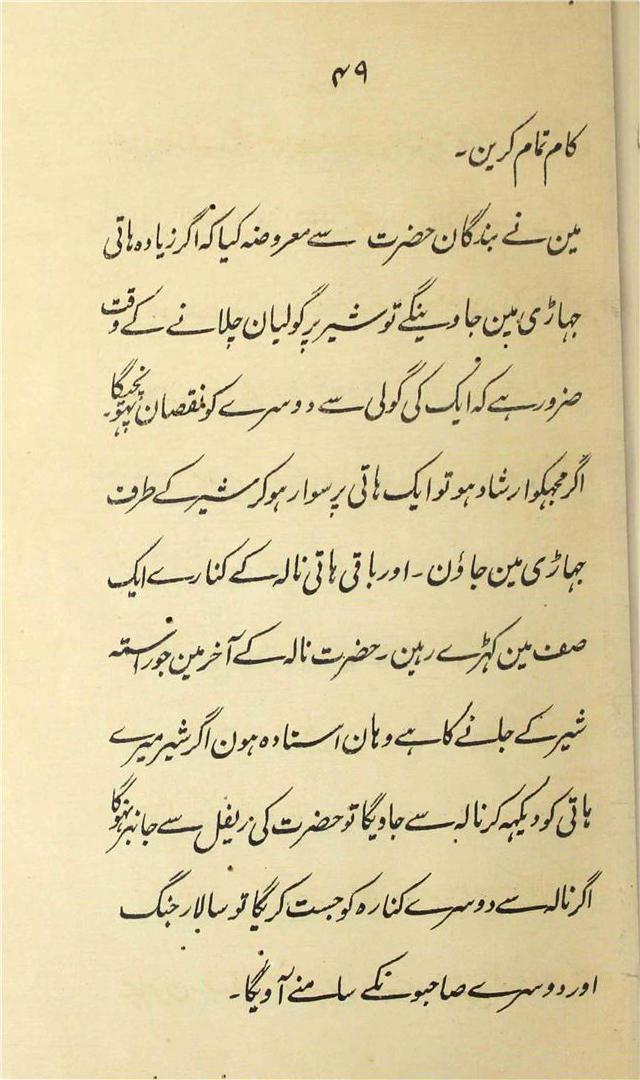 ۴۹
کام تمام کرین۔
مین نے بندگان حضرت سے معروضہ کیا کہ اگر زیادہ ہاتی
جہاڑی مین جاوینگے تو شیر پر گولیان چلانے کے وقت
ضرور ہے کہ ایک کی گولی سے دوسرے کو نقصان پہونچیگا۔
اگر مجہکو ارشاد ہو تو ایک ہاتی پر سوار ہو کر شیر کے طرف
جہاڑی مین جاؤن۔ اور باقی ہاتی نالہ کے کنارے ایک
صف مین کہڑے رہین۔ حضرت نالہ کے آخر مین جو راستہ
شیر کے جانے کا ہے وہان استادہ ہون اگر شیر میرے
ہاتی کو دیکہہ کر نالہ سے جاویگا تو حضرت کی ریفل سے جانبر نہوگا
اگر نالہ سے دوسرے کنارہ کو جست کریگا تو سالار جنگ
اور دوسرے صاحبونکے سامنے آویگا۔